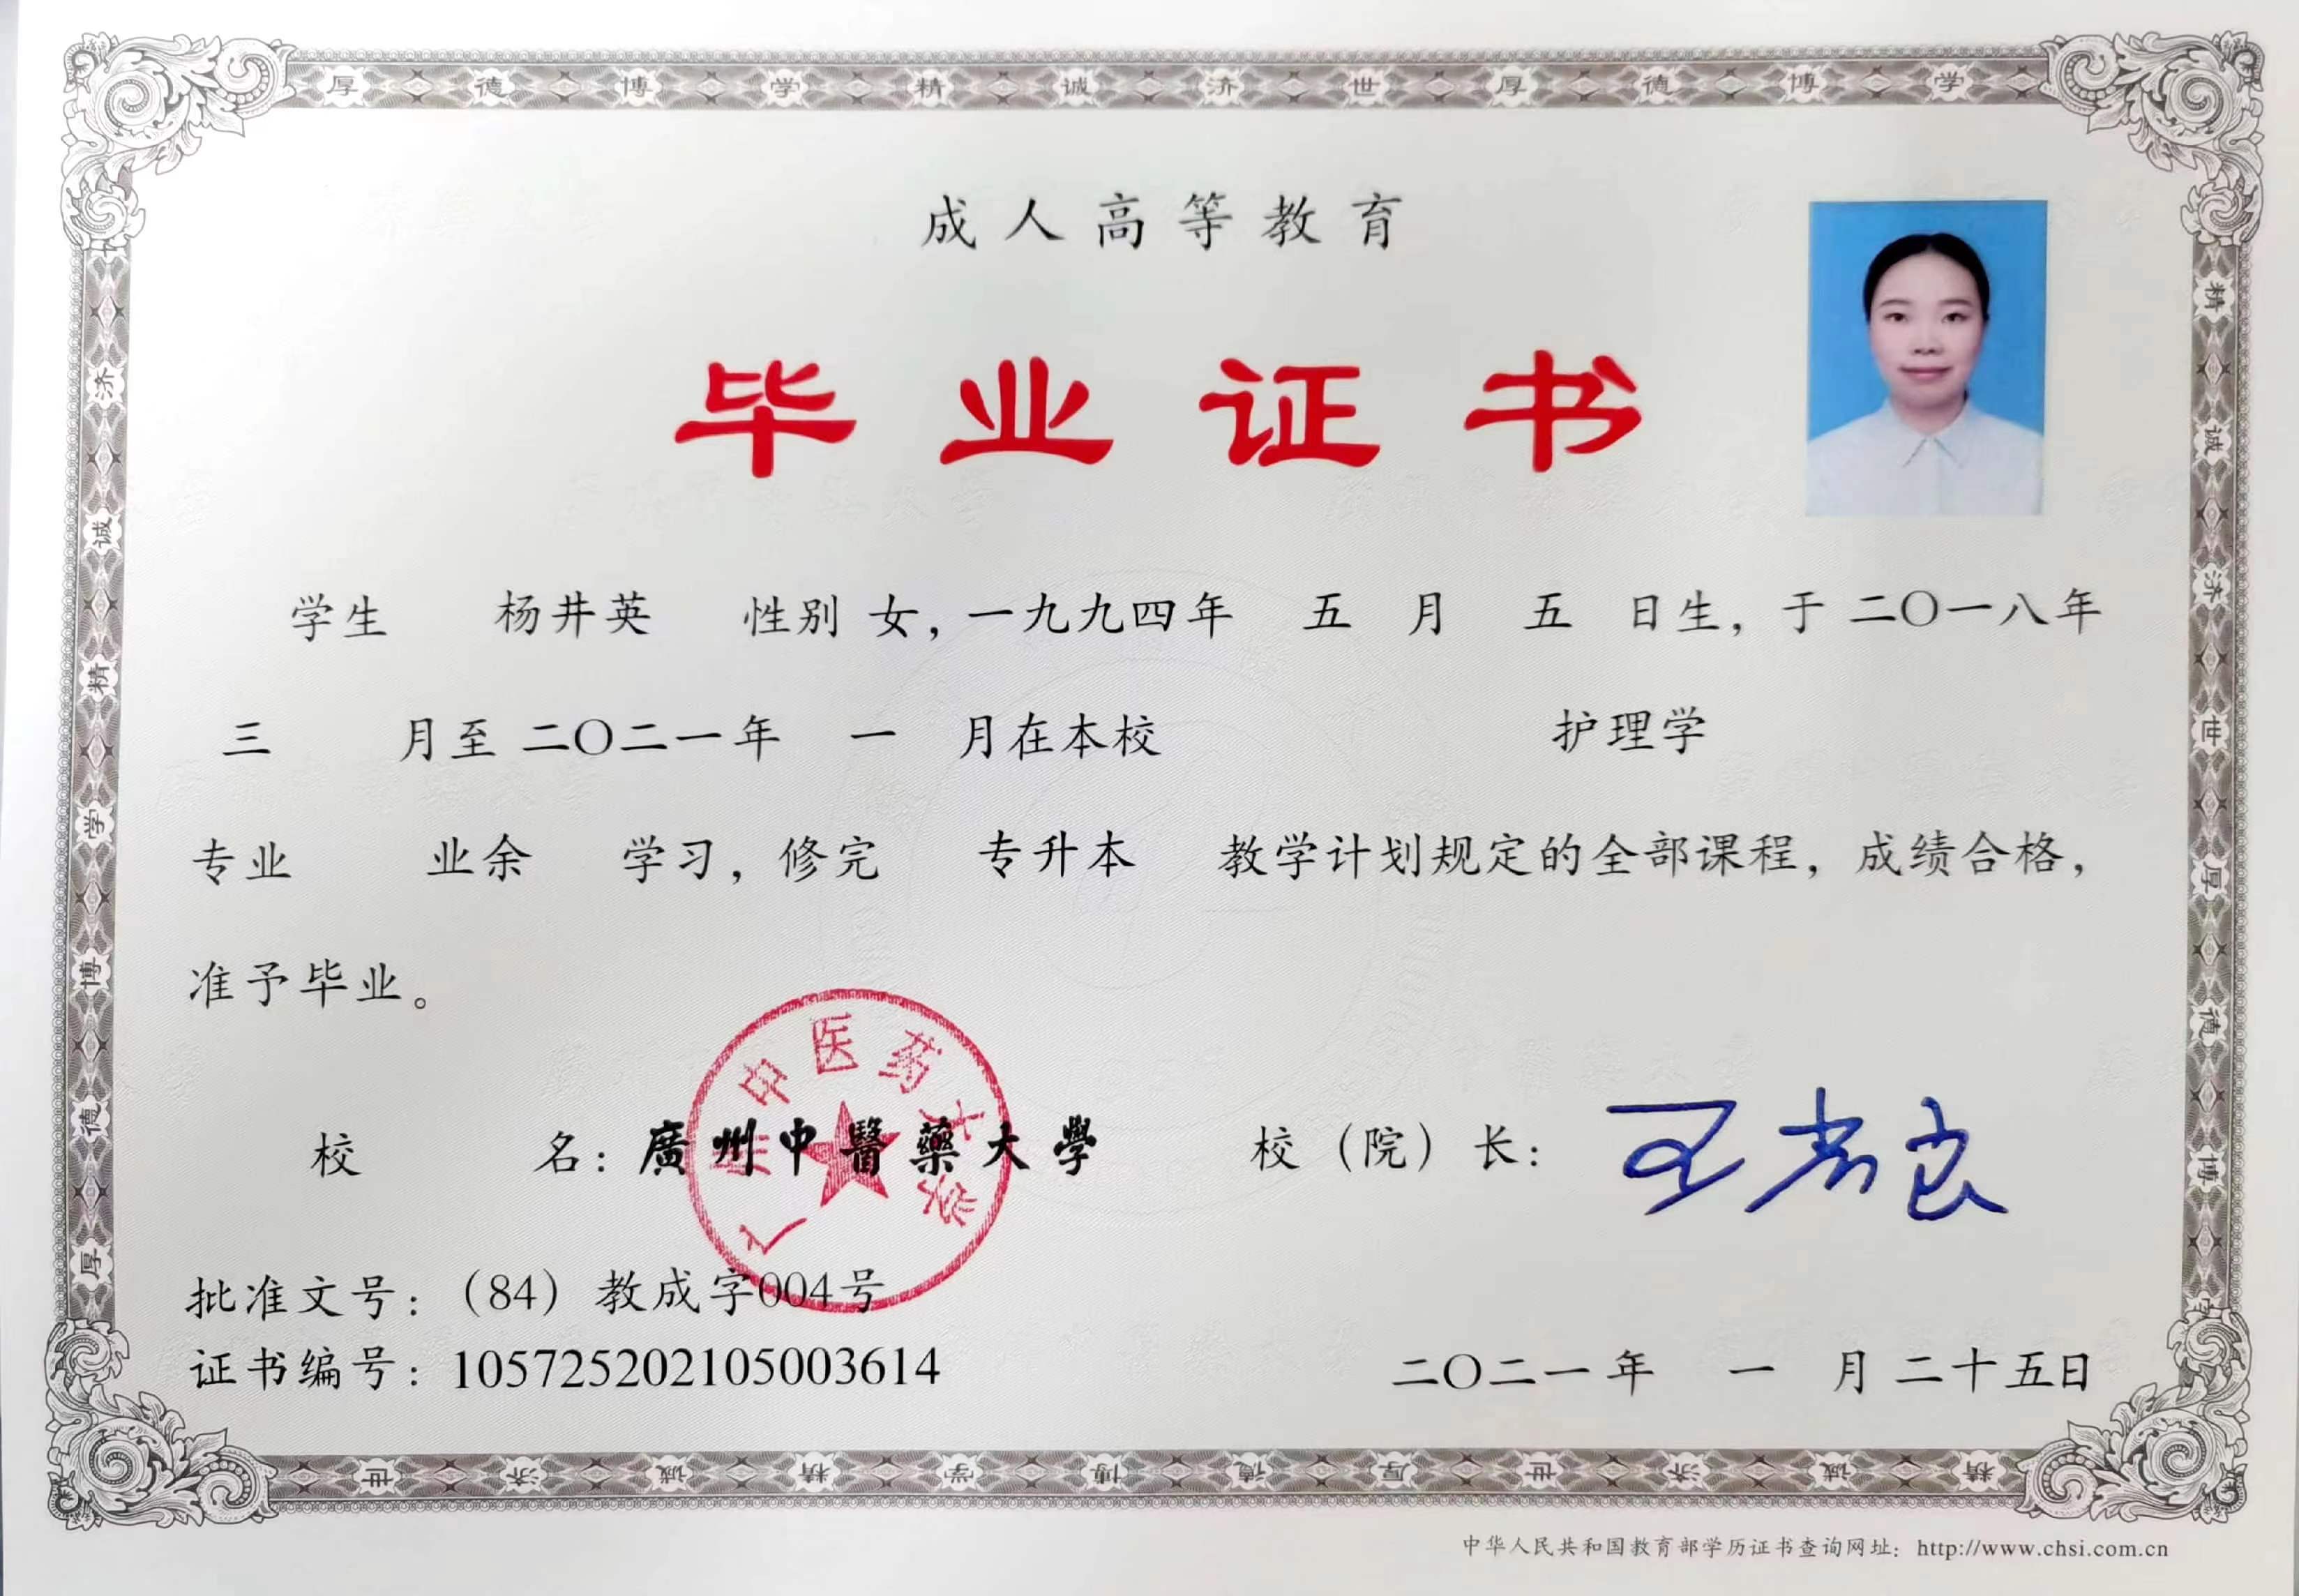 厚德博学精诚济世厚德博学
成人高等教育
毕业证书
学生 杨井英 性别 女，一九九四年 五 月 五 日生，于 二〇一八年
三 月至 二〇二一年 一 月在本校 护理学
专业 业余 学习，修完 专升本 教学计划规定的全部课程，成绩合格，
准予毕业。
校 名：廣州中醫藥大學 校（院）长：
广州中医药大学
批准文号：（84）教成字004号
证书编号：105725202105003614 二〇二一年 一 月 二十五日
厚德博学精诚济
精诚济世厚德博学
精诚济世厚德博学精诚济世
中华人民共和国教育部学历证书查询网址：http://www.chsi.com.cn